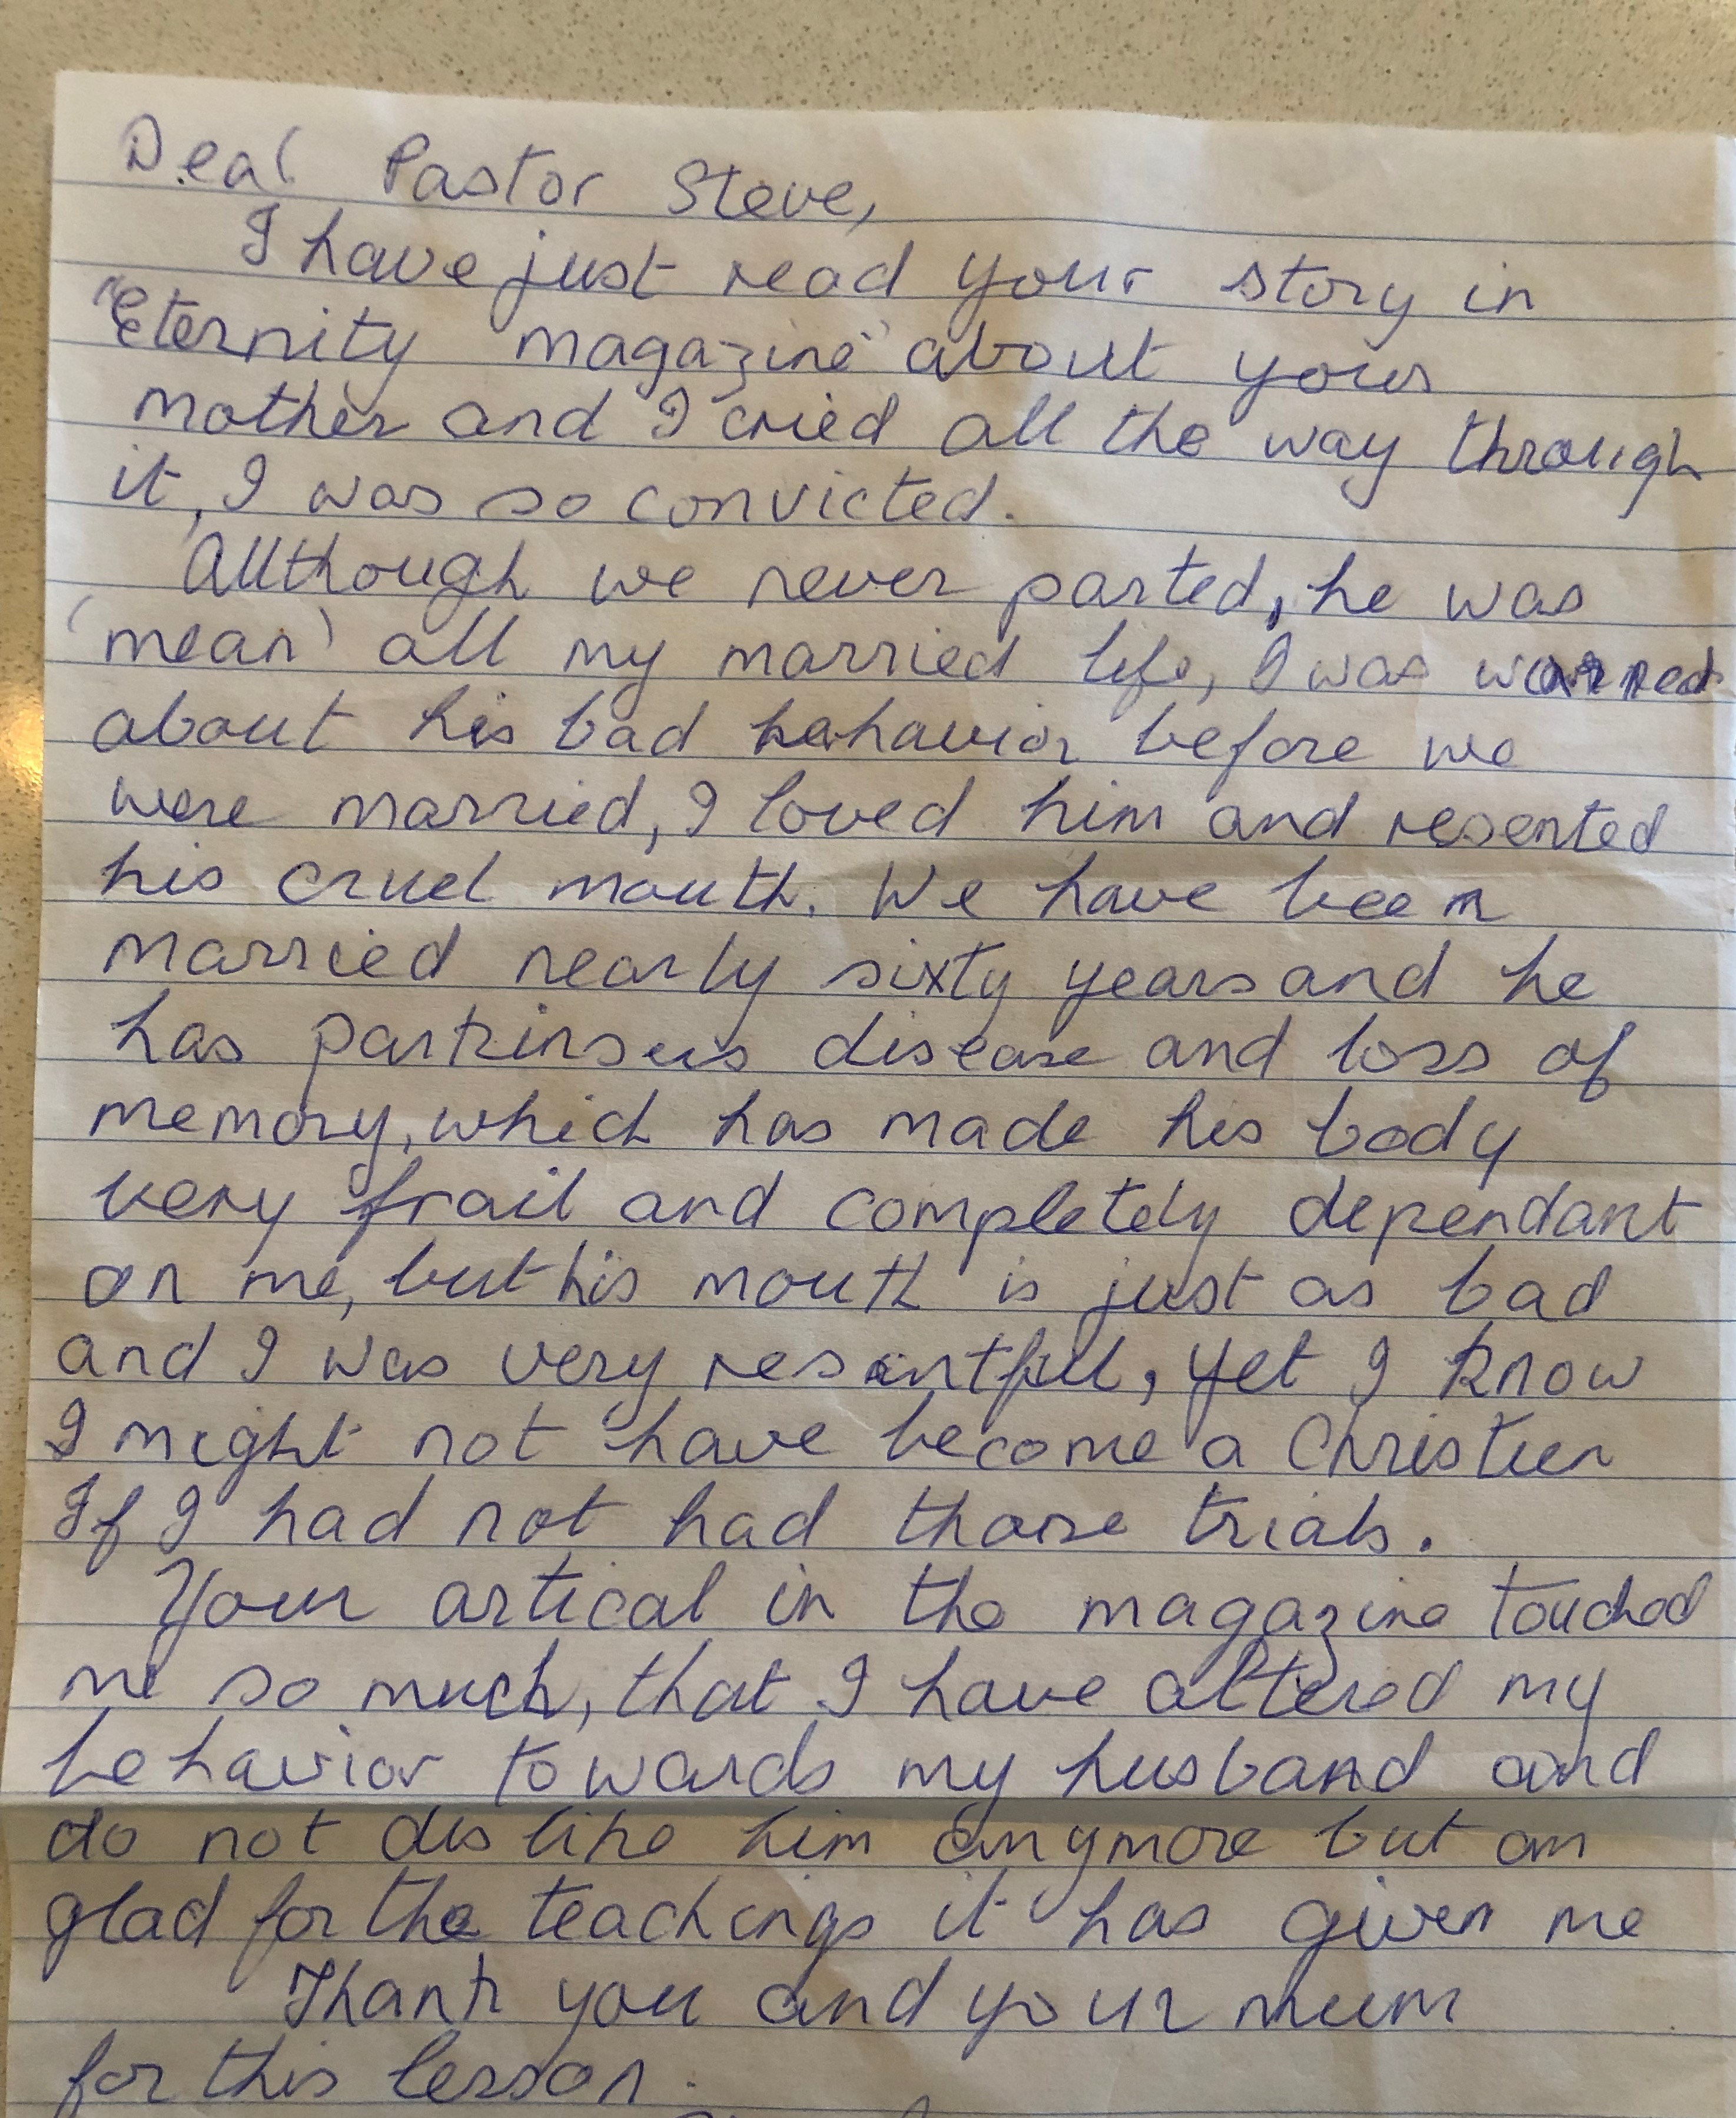 Dear Pastor Steve,
I have just read your story in
"Eternity magazine" about your
mother and I cried all the way through
it, I was so convicted.
Allthough we never parted, he was
'mean' all my married life, I was warned
about his bad behavior before we
were married, I loved him and resented
his cruel mouth. We have been
married nearly sixty years and he
has parkinsens disease and loss of
memory, which has made his body
very frail and completely dependant
on me, but his mouth is just as bad
and I was very resentful, yet I know
I might not have become a Christien
If I had not had those trials.
Your artical in the magazine touched
me so much, that I have altered my
behavior towards my husband and
do not dislike him anymore but am
glad for the teachings it has given me
Thank you and your mum
for this lesson.